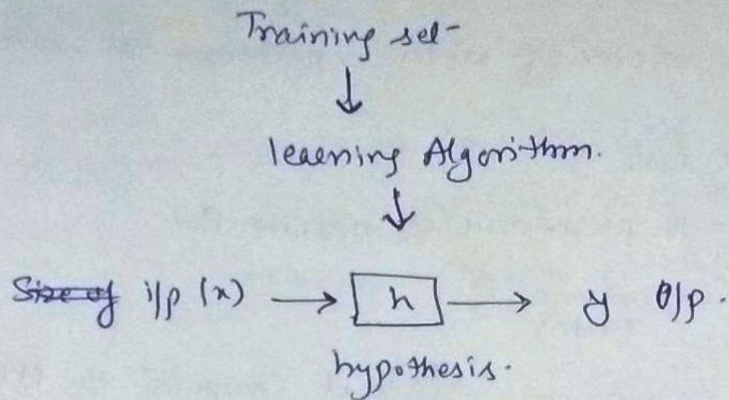 Training set
↓
learning Algorithm.
↓
Size of i/p (x) → h → y o/p.
hypothesis.